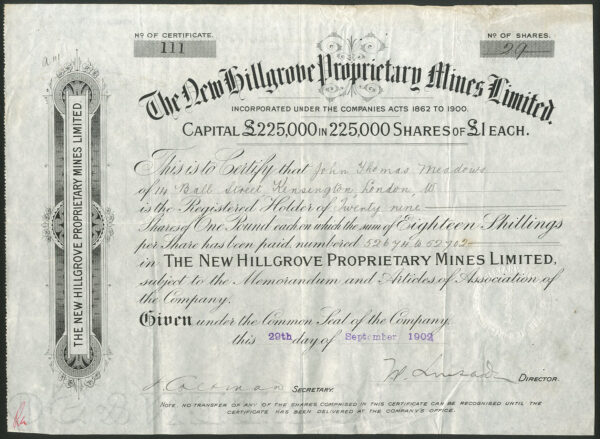 Nº OF CERTIFICATE.
111
Nº OF SHARES.
29
The New Hillgrove Proprietary Mines Limited.
INCORPORATED UNDER THE COMPANIES ACTS 1862 TO 1900.
CAPITAL £225,000 IN 225,000 SHARES OF £1 EACH.
This is to Certify that John Thomas Meadows
of 14 Ball Street, Kensington, London, W
is the Registered Holder of Twenty nine
Shares of One Pound each on which the sum of Eighteen Shillings
per Share has been paid, numbered 52674 to 52702
in THE NEW HILLGROVE PROPRIETARY MINES LIMITED,
subject to the Memorandum and Articles of Association of
the Company.
Given under the Common Seal of the Company.
this 29th day of September 1902
SECRETARY.
DIRECTOR.
NOTE. NO TRANSFER OF ANY OF THE SHARES COMPRISED IN THIS CERTIFICATE CAN BE RECOGNISED UNTIL THE
CERTIFICATE HAS BEEN DELIVERED AT THE COMPANY'S OFFICE.
THE NEW HILLGROVE PROPRIETARY MINES LIMITED